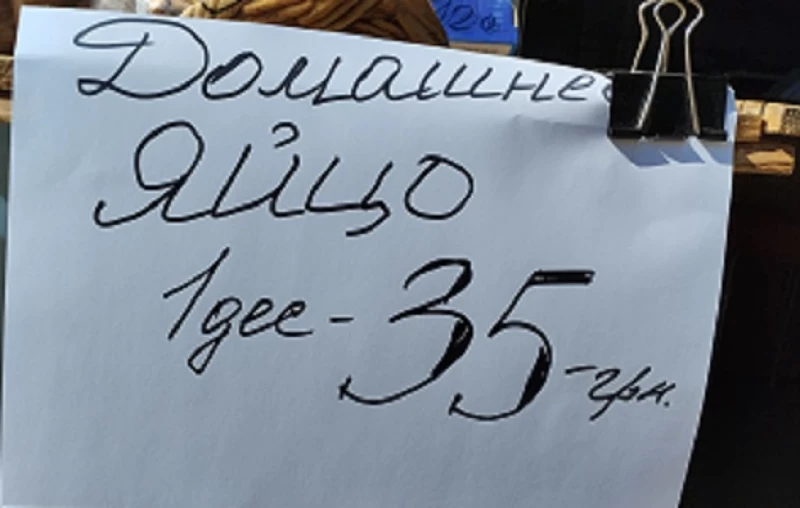 Домашнее
яйцо
1 дес - 35 - грн.